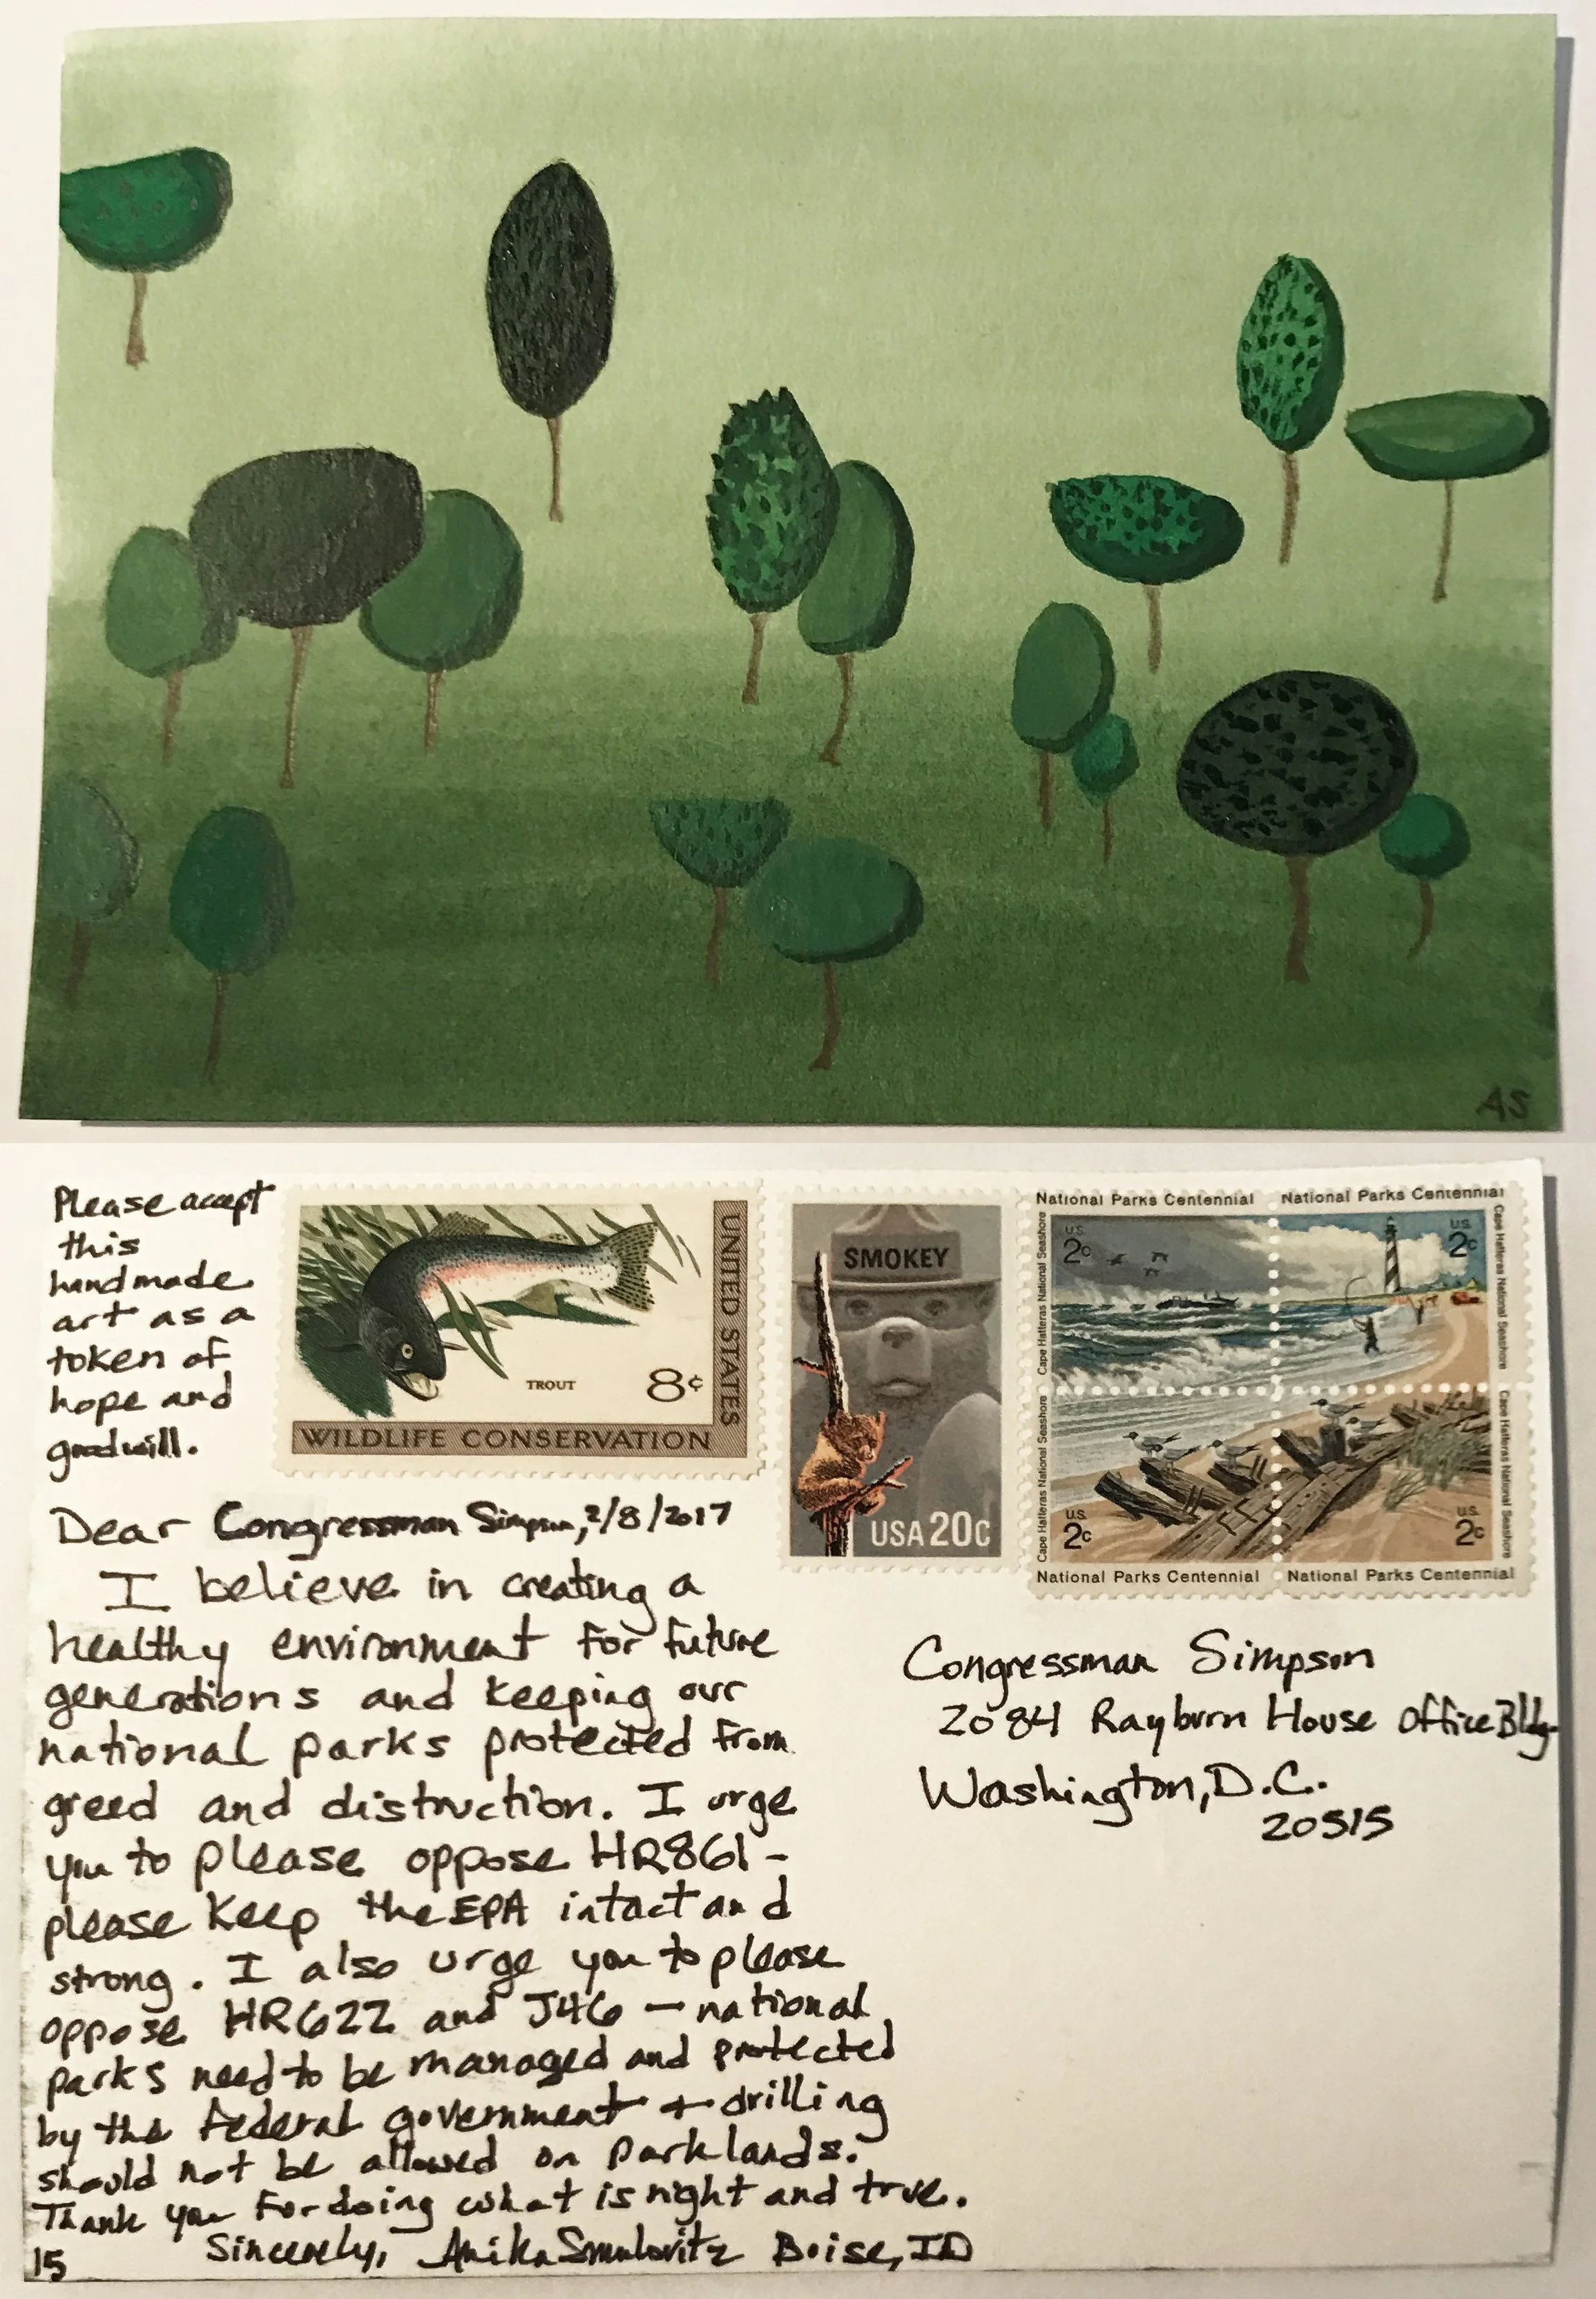 AS
Please accept
this
handmade
art as a
token of
hope and
goodwill.
UNITED STATES
TROUT
8¢
WILDLIFE CONSERVATION
SMOKEY
USA 20c
National Parks Centennial
National Parks Centennial
Cape Hatteras National Seashore
US
2c
US
2c
Cape Hatteras National Seashore
Cape Hatteras National Seashore
US
2c
US
2c
Cape Hatteras National Seashore
National Parks Centennial
National Parks Centennial
Dear Congressman Simpson, 2/8/2017
I believe in creating a
healthy environment for future
generations and keeping our
national parks protected from
greed and distruction. I urge
you to please oppose HR861-
please keep the EPA intact and
strong. I also urge you to please
oppose HR622 and J46 — national
parks need to be managed and protected
by the federal government + drilling
should not be allowed on park lands.
Thank you for doing what is right and true.
Sincerely, Anika Smulovitz Boise, ID
15
Congressman Simpson
2084 Rayburn House Office Bldg.
Washington, D.C.
20515